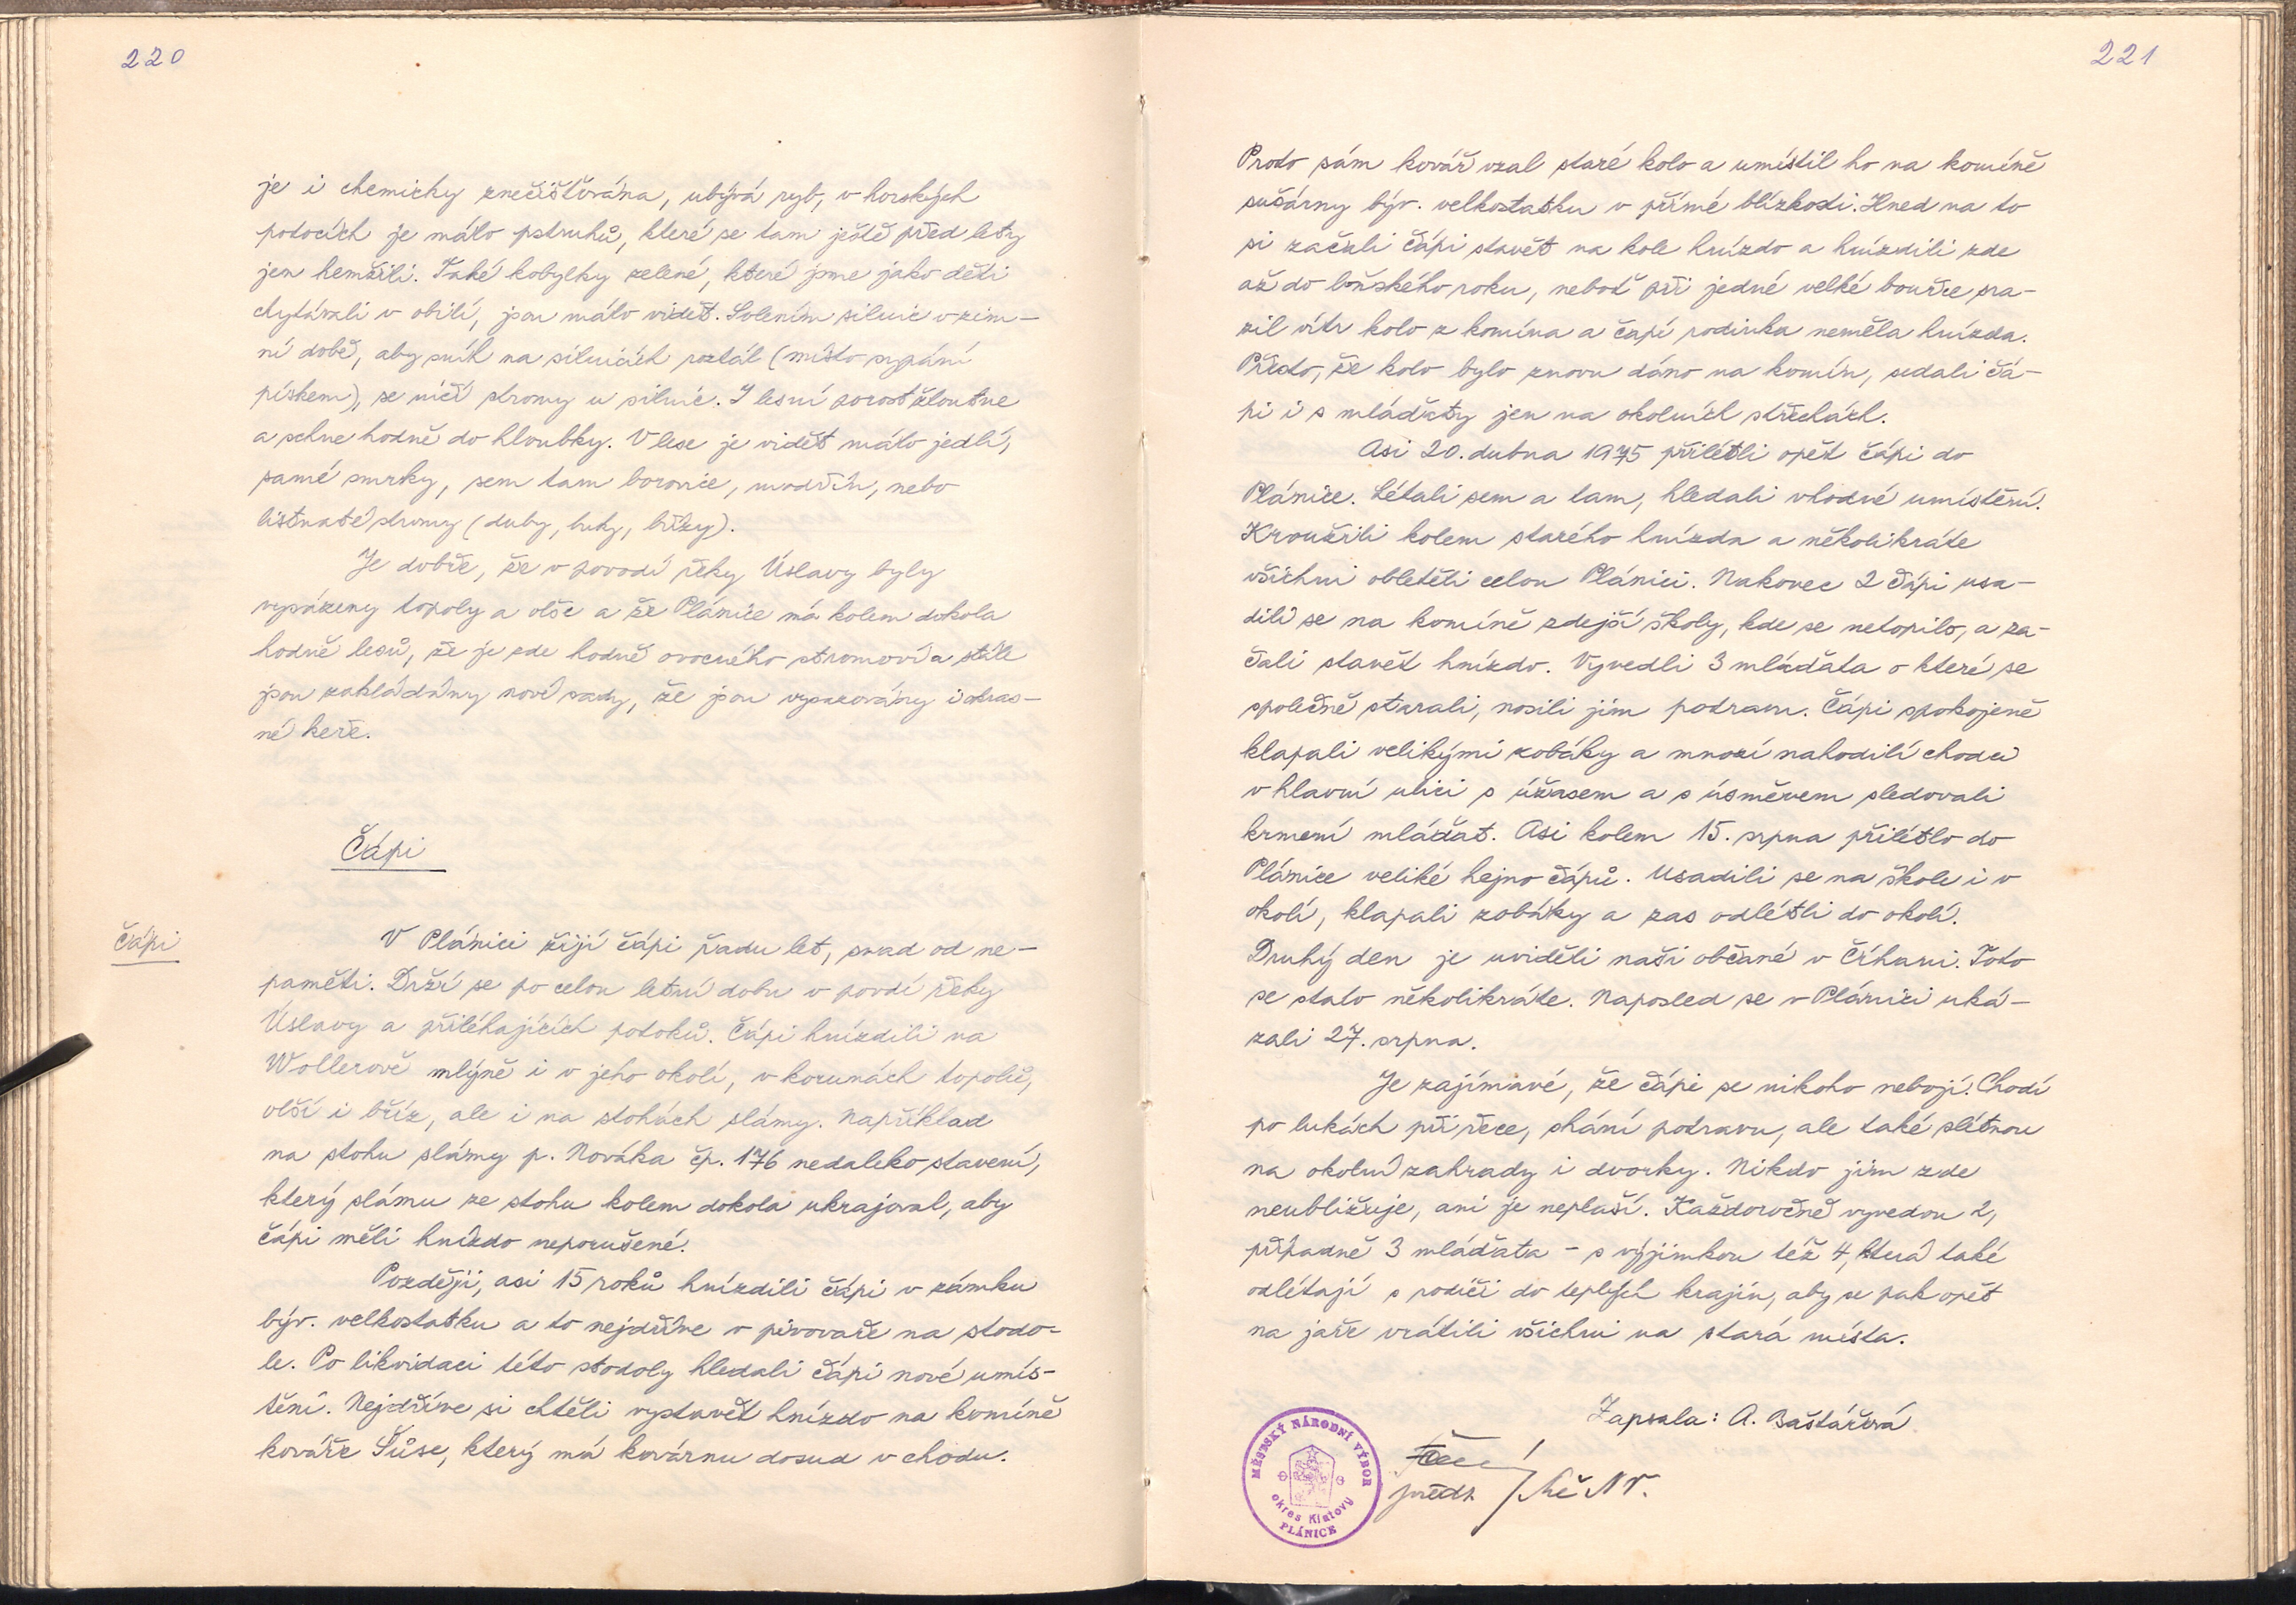 220
je i chemicky znečišťována, ubývá ryb, v horských
potocích je málo pstruhů, které se tam ještě před lety
jen hemžili. Také kobylky zelené, které jsme jako děti
chytávali v obilí, jsou málo vidět. Solením silnic v zim-
ní době, aby sníh na silnicích roztál (místo sypání
pískem), se ničí stromy u silnic. I lesní porost žloutne
a schne hodně do hloubky. V lese je vidět málo jedlí,
samé smrky, sem tam borovice, modřín, nebo
listnaté stromy (duby, buky, břízy).
Je dobře, že v povodí řeky Úslavy byly
vysázeny topoly a olše a že Plánice má kolem dokola
hodně lesů, že je zde hodně ovocného stromoví a stále
jsou zakládány nové sady, že jsou vysazovány i okras-
né keře.
Čápi
Čápi
V Plánici žijí čápi řadu let, snad od ne-
paměti. Drží se po celou letní dobu v povdí řeky
Úslavy a přiléhajících potoků. Čápi hnízdili na
Wollerově mlýně i v jeho okolí, v korunách topolů,
olší i bříz, ale i na stohách slámy. Například
na stohu slámy p. Nováka čp. 176 nedaleko stavení,
který slámu ze stohu kolem dokola ukrajoval, aby
čápi měli hnízdo neporušené.
Později, asi 15 roků hnízdili čápi v zámku
býv. velkostatku a to nejdříve v pivovaře na stodo-
le. Po likvidaci této stodoly hledali čápi nové umís-
tění. Nejdříve si chtěli vystavět hnízdo na komíně
kováře Šůse, který má kovárnu dosud v chodu.
221
Proto sám kovář vzal staré kolo a umístil ho na komíně
sušárny býv. velkostatku v přímé blízkosti. Hned na to
si začali čápi stavět na kole hnízdo a hnízdili zde
až do loňského roku, neboť při jedné velké bouřce sra-
zil vítr kolo z komína a čapí rodinka neměla hnízda.
Přesto, že kolo bylo znovu dáno na komín, sedali čá-
pi i s mláďaty jen na okolních střechách.
Asi 20. dubna 1975 přilétli opět čápi do
Plánice. Létali sem a tam, hledali vhodné umístění.
Kroužili kolem starého hnízda a několikráte
všichni obletěli celou Plánici. Nakonec 2 čápi usa-
dili se na komíně zdejší školy, kde se netopilo, a za-
čali stavět hnízdo. Vyvedli 3 mláďata o které se
společně starali, nosili jim potravu. Čápi spokojeně
klapali velikými zobáky a mnozí nahodilí chodci
v hlavní ulici s úžasem a s úsměvem sledovali
krmení mláďat. Asi kolem 15. srpna přilétlo do
Plánice veliké hejno čápů. Usadili se na škole i v
okolí, klapali zobáky a zas odlétli do okolí.
Druhý den je uviděli naši občané v Číhani. Toto
se stalo několikráte. Naposled se v Plánici uká-
zali 27. srpna.
Je zajímavé, že čápi se nikoho nebojí. Chodí
po lukách při řece, shání potravu, ale také slétnou
na okolní zahrady i dvorky. Nikdo jim zde
neubližuje, ani je neplaší. Každoročně vyvedou 2,
případně 3 mláďata - s výjimkou též 4, která také
odlétají s rodiči do teplých krajin, aby se pak opět
na jaře vrátili všichni na stará místa.
Zapsala: A. Baštářová
předs. MěNV.
MĚSTSKÝ NÁRODNÍ VÝBOR
okres Klatovy
PLÁNICE